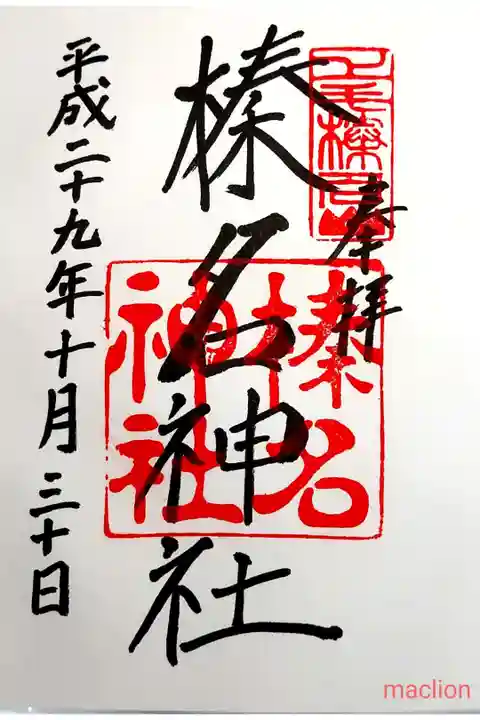 奉拝
上毛榛名山
榛名神社
榛名
神社
平成二十九年十月三十日
maclion